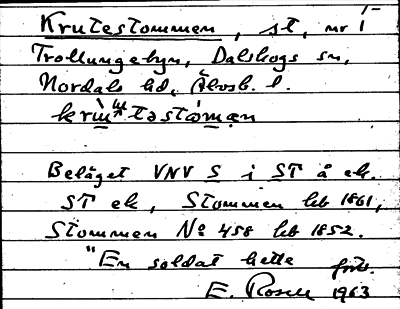 Krutestommen, st, nr 1
Trollungebyn, Dalskogs sn,
Nordals hd, Älvsb. l.
Beläget VNV S i ST å ek.
ST ek, Stommen hb 1861,
Stommen No 458 hb 1852.
"En soldat hette förs.
E. Rosell 1963